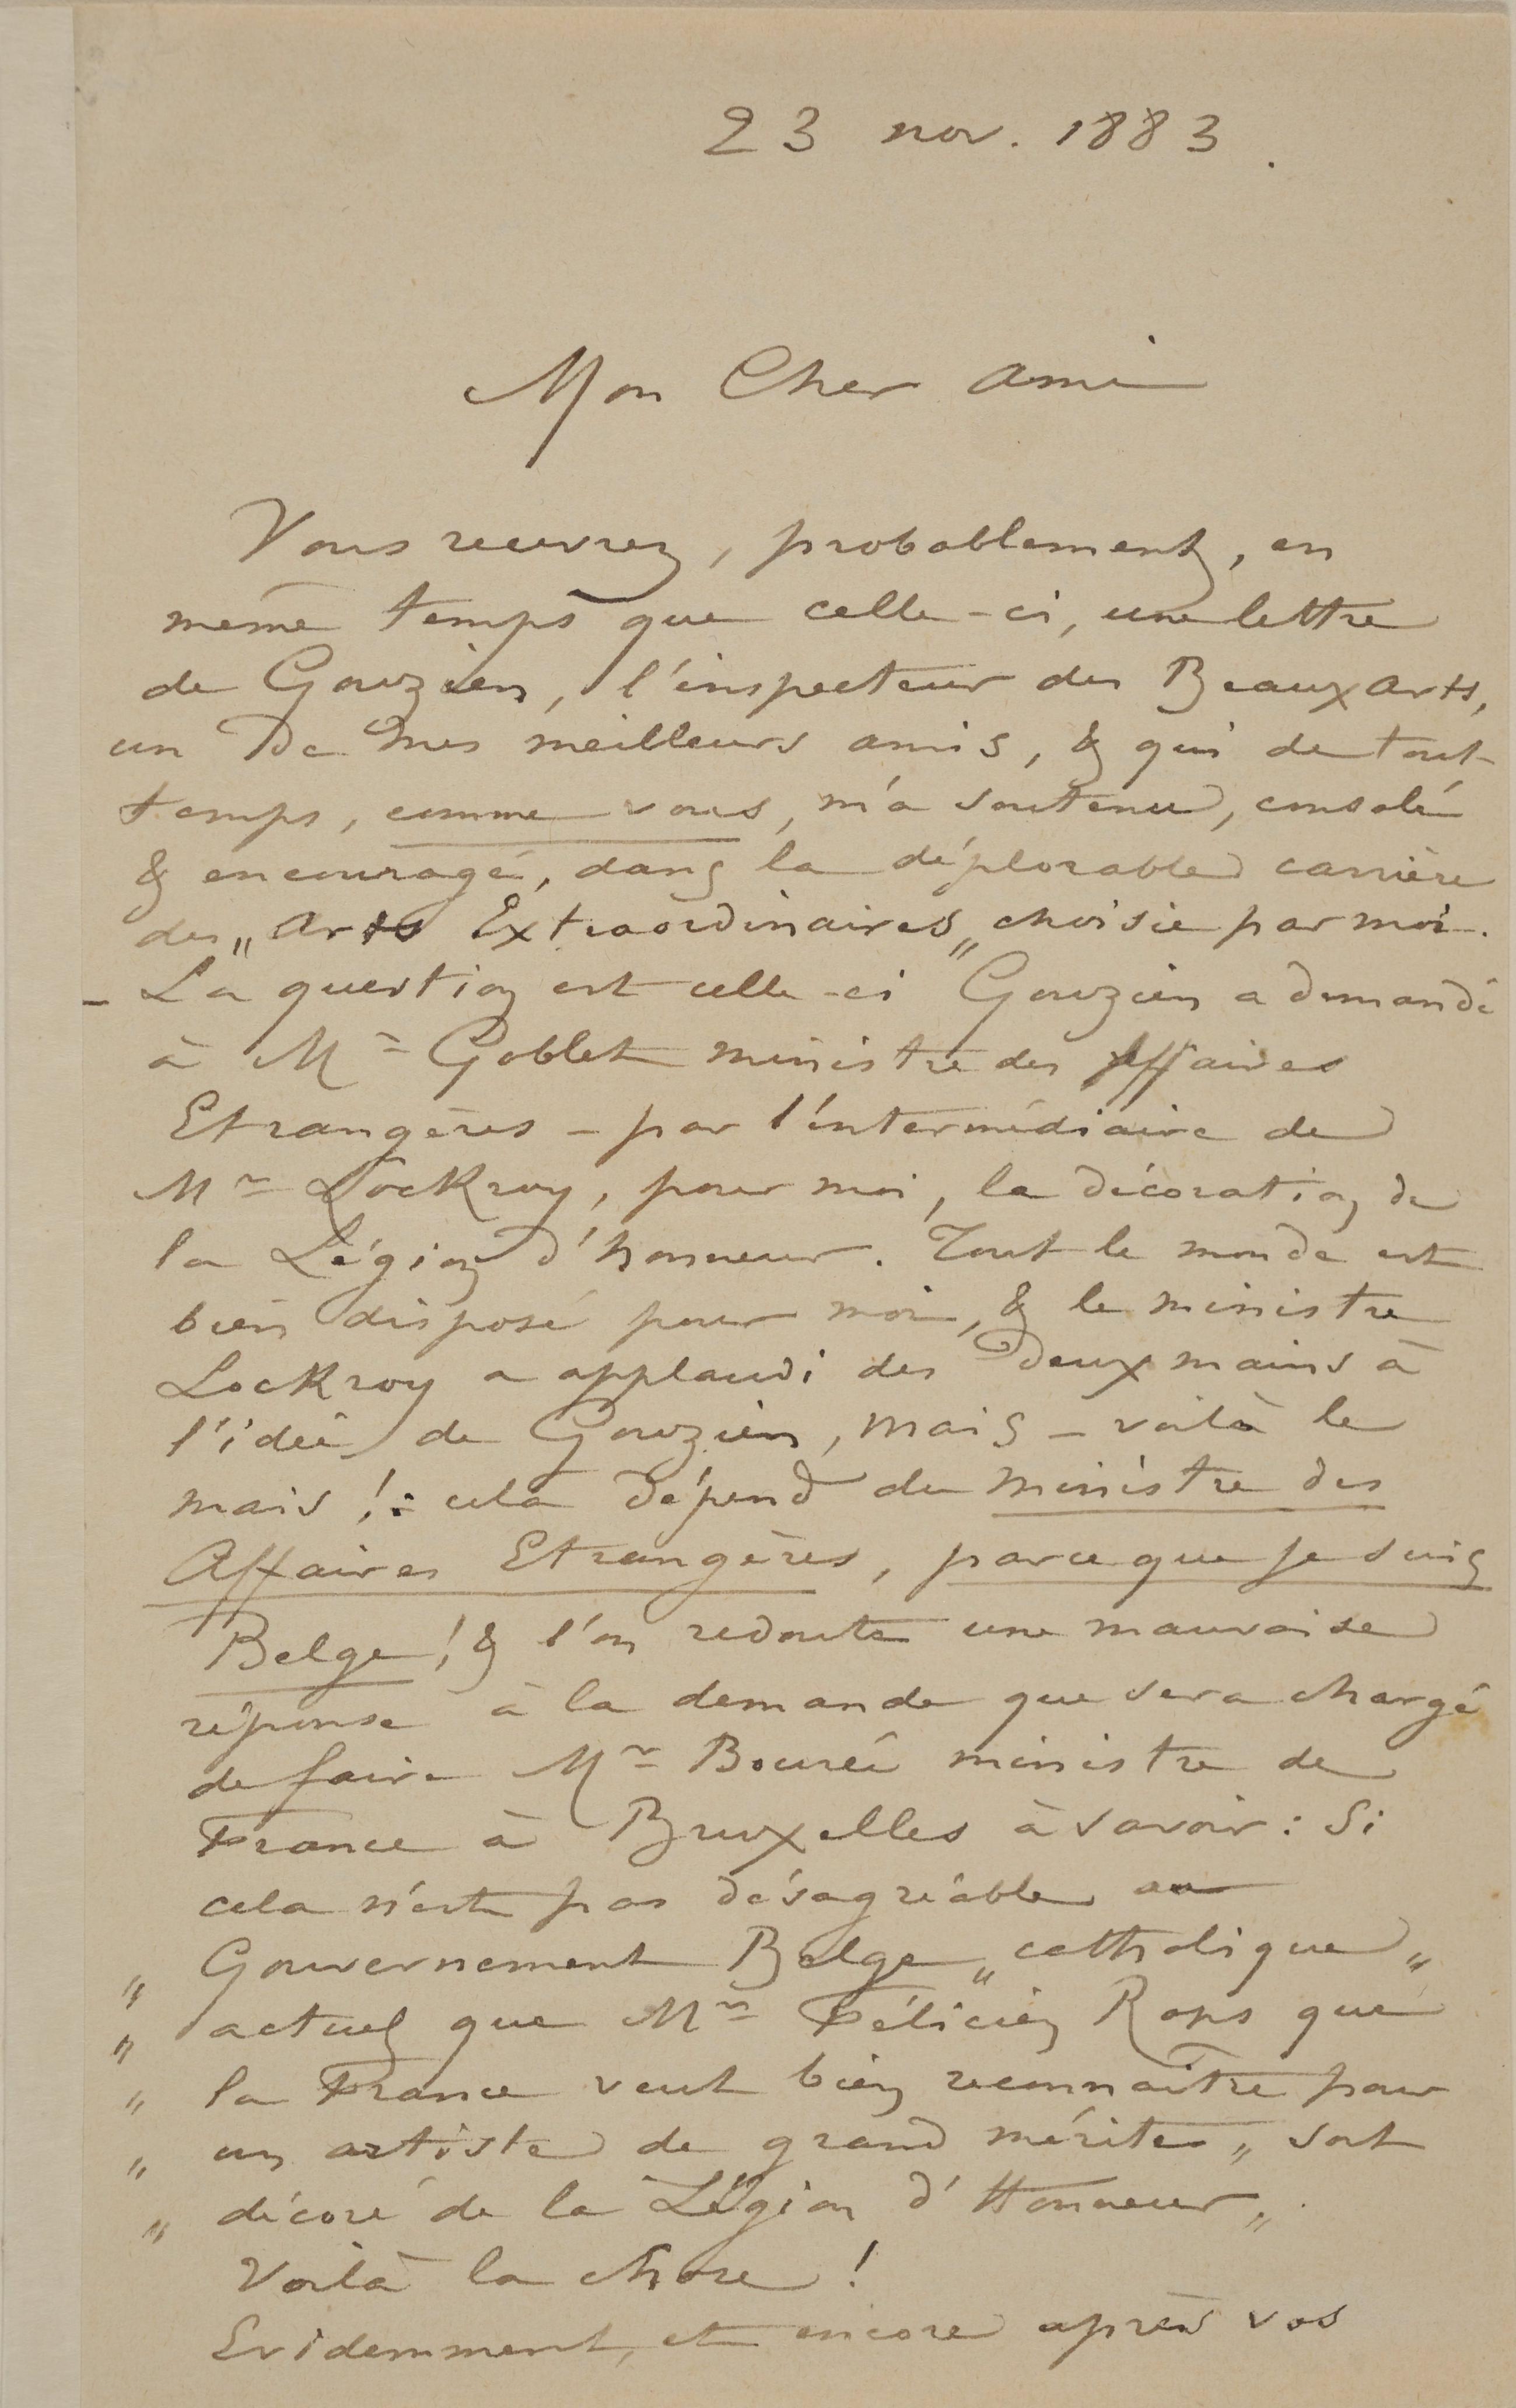 23 nov. 1883.
Mon Cher Ami
Vous recevrez, probablement, en
même temps que celle-ci, une lettre
de Gouzien, l'inspecteur des Beaux Arts,
un De mes meilleurs amis, & qui de tout
temps, comme vous, m'a soutenu, consolé
& encouragé, dans la déplorable carrière
des „Arts Extraordinaires„ choisie par moi.
- La question est celle-ci Gouzien a demandé
à Mr Goblet ministre des Affaires
Etrangères - par l'intermédiaire de
Mr Lockroy, pour moi, la décoration de
la Légion d'honneur. Tout le monde est
bien disposé pour moi, & le ministre
Lockroy a applaudi des Deux mains à
l'idée de Gouzien, mais - voilà le
mais !: cela dépend du ministre des
Affaires Etrangères, parce que je suis
Belge ! & l'on redoute une mauvaise
réponse à la demande que sera chargé
de faire Mr Bourée ministre de
France à Bruxelles à savoir : Si
cela n'est pas désagréable au
„ Gouvernement Belge „catholique„
„ actuel que Mr Félicien Rops que
„ la France veut bien reconnaitre pour
„ un artiste de grand mérite„ soit
„ décoré de la Légion d'Honneur„.
Voilà la chose !
Evidemment, et encore après vos